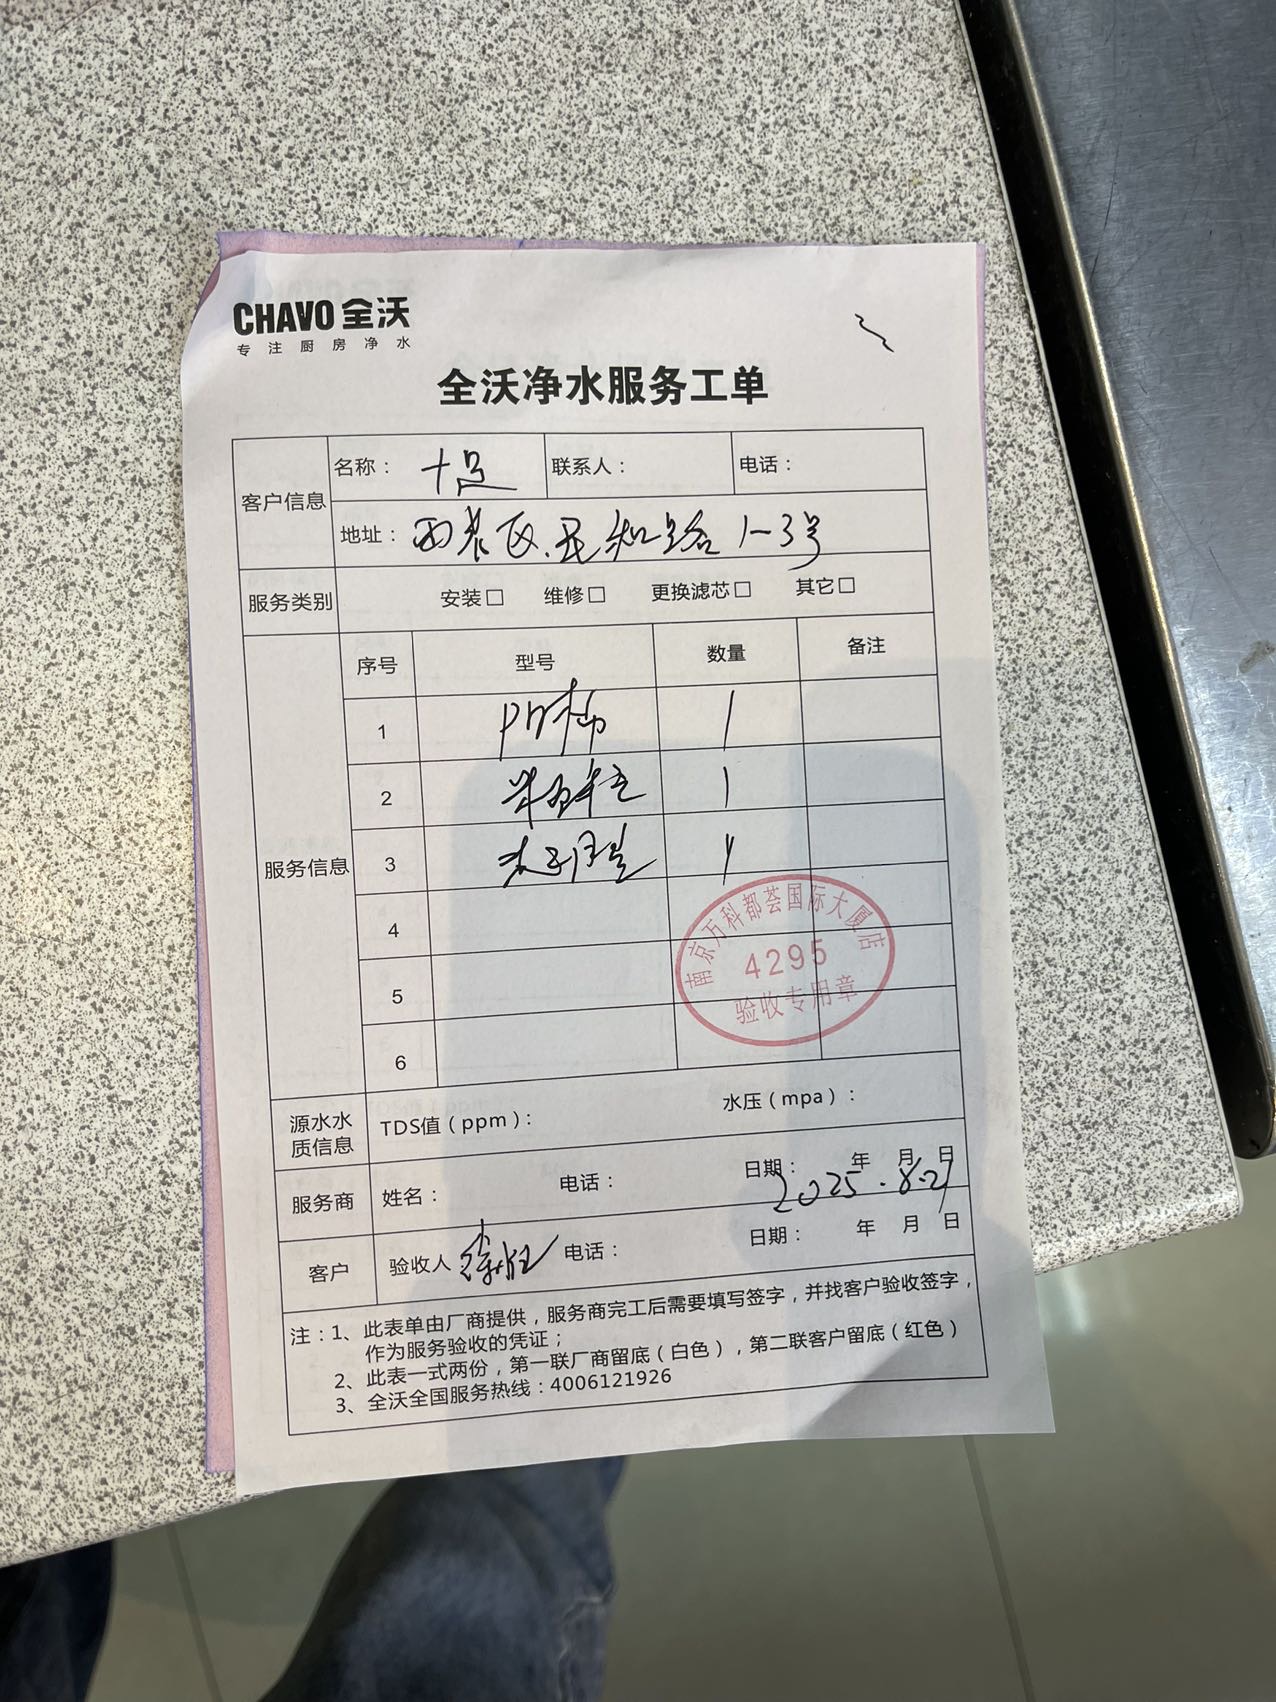 CHAVO 全沃
专注厨房净水
全沃净水服务工单
客户信息
名称：
联系人：
电话：
地址：区.民和路1-3号
服务类别
安装□ 维修□ 更换滤芯□ 其它□
服务信息
序号 型号 数量 备注
1 1
2 1
3
4
5
6
南京万科都荟国际大厦店
4295
验收专用章
源水水质信息
TDS值（ppm）：
水压（mpa）：
服务商
姓名：
电话：
日期： 年 月 日
2025.8.21
客户
验收人
电话：
日期： 年 月 日
注：1、此表单由厂商提供，服务商完工后需要填写签字，并找客户验收签字，
作为服务验收的凭证；
2、此表一式两份，第一联厂商留底（白色），第二联客户留底（红色）
3、全沃全国服务热线：4006121926